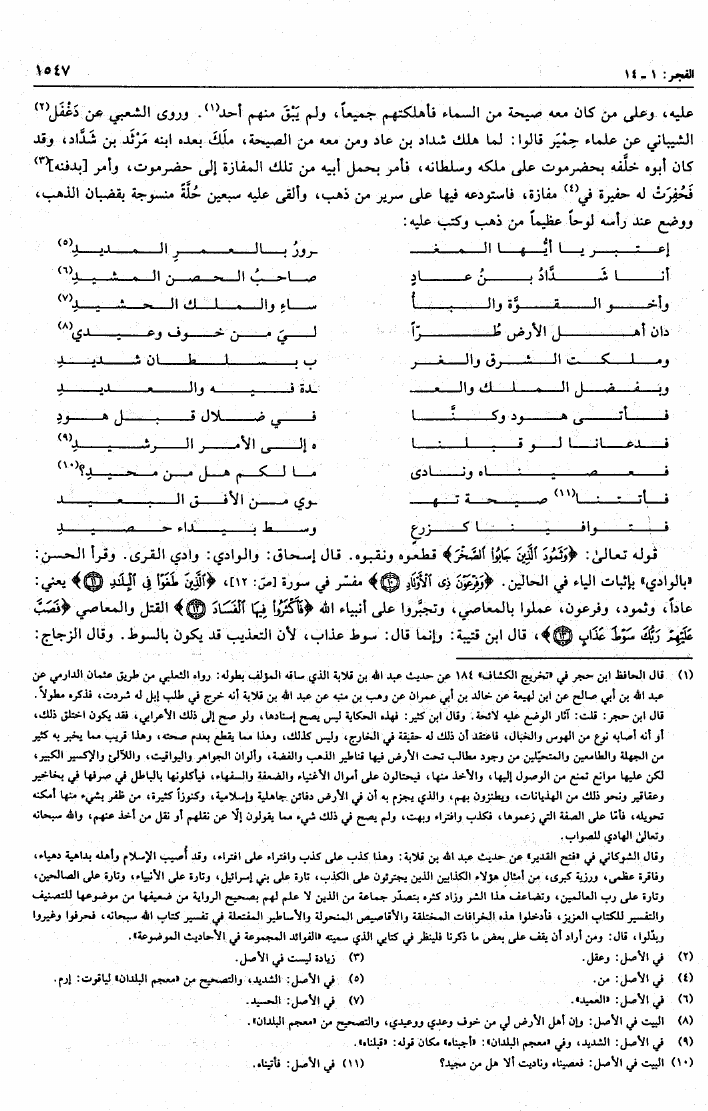 الفجر: ١ ـ ١٤
١٥٤٧
عليه، وعلى من كان معه صيحة من السماء فأهلكتهم جميعاً، ولم يَبْقَ منهم أحد(١). وروى الشعبي عن دَغْفَل(٢)
الشيباني عن علماء حِمْيَر قالوا: لما هلك شداد بن عاد ومن معه من الصيحة، ملَكَ بعده ابنه مَرْثَد بن شَدَّاد، وقد
كان أبوه خلَّفه بحضرموت على ملكه وسلطانه، فأمر بحمل أبيه من تلك المفازة إلى حضرموت، وأمر [بدفنه](٣)
فَحُفِرَتْ له حفيرة في(٤) مفازة، فاستودعه فيها على سرير من ذهب، وألقى عليه سبعين حُلَّةً منسوجة بقضبان الذهب،
ووضع عند رأسه لوحاً عظيماً من ذهب وكتب عليه:
إعتبر يا أيُّها المغـ ـرورُ بالعمرِ المديدِ(٥)
أنا شَدَّادُ بنُ عادٍ صاحبُ الحصن المشيدِ(٦)
وأخو القوَّة والبأ ساءِ والملك الحشيدِ(٧)
دان أهل الأرض طُرّاً لي من خوف وعيدي(٨)
وملكت الشرق والغر ب بسلطان شديدِ
وبفضل الملك والعـ ـدة فيه والعديدِ
فأتى هود وكنَّا في ضلال قبل هودِ
فدعانا لو قبلنا ه إلى الأمر الرشيدِ(٩)
فعصيناه ونادى ما لكم هل من محيدِ؟(١٠)
فأتتنا(١١) صيحة تهـ ـوي من الأفق البعيدِ
فتوافينا كزرعٍ وسط بيداء حصيدِ
قوله تعالىٰ: ﴿وَثَمُودَ ٱلَّذِينَ جَابُوا ٱلصَّخْرَ﴾ قطعوه ونقبوه. قال إسحاق: والوادي: وادي القرى. وقرأ الحسن:
«بالوادي» بإثبات الياء في الحالين. ﴿وَفِرْعَوْنَ ذِى ٱلْأَوْتَادِ ۝١٠﴾ مفسّر في سورة [صۤ: ١٢]، ﴿ٱلَّذِينَ طَغَوْا فِى ٱلْبِلَٰدِ ۝١١﴾ يعني:
عاداً، وثمود، وفرعون، عملوا بالمعاصي، وتجبَّروا على أنبياء الله ﴿فَأَكْثَرُوا فِيهَا ٱلْفَسَادَ ۝١٢﴾ القتل والمعاصي ﴿فَصَبَّ
عَلَيْهِمْ رَبُّكَ سَوْطَ عَذَابٍ ۝١٣﴾، قال ابن قتيبة: وإنما قال: سوط عذاب، لأن التعذيب قد يكون بالسوط. وقال الزجاج:
(١) قال الحافظ ابن حجر في «تخريج الكشاف» ١٨٤ عن حديث عبد الله بن قلابة الذي ساقه المؤلف بطوله: رواه الثعلبي من طريق عثمان الدارمي عن
عبد الله بن أبي صالح عن ابن لهيعة عن خالد بن أبي عمران عن وهب بن منبه عن عبد الله بن قلابة أنه خرج في طلب إبل له شردت، فذكره مطولاً.
قال ابن حجر: قلت: آثار الوضع عليه لائحة. وقال ابن كثير: فهذه الحكاية ليس يصح إسنادها، ولو صح إلى ذلك الأعرابي، فقد يكون اختلق ذلك،
أو أنه أصابه نوع من الهوس والخبال، فاعتقد أن ذلك له حقيقة في الخارج، وليس كذلك، وهذا مما يقطع بعدم صحته، وهذا قريب مما يخبر به كثير
من الجهلة والطامعين والمتحيّلين من وجود مطالب تحت الأرض فيها قناطير الذهب والفضة، وألوان الجواهر واليواقيت، واللآلئ والإكسير الكبير،
لكن عليها موانع تمنع من الوصول إليها، والأخذ منها، فيحتالون على أموال الأغنياء والضعفة والسفهاء، فيأكلونها بالباطل في صرفها في بخاخير
وعقاقير ونحو ذلك من الهذيانات، ويطنزون بهم، والذي يجزم به أن في الأرض دفائن جاهلية وإسلامية، وكنوزاً كثيرة، من ظفر بشيء منها أمكنه
تحويله، فأمّا على الصفة التي زعموها، فكذب وافتراء وبهت، ولم يصح في ذلك شيء مما يقولون إلّا عن نقلهم أو نقل من أخذ عنهم، والله سبحانه
وتعالىٰ الهادي للصواب.
وقال الشوكاني في «فتح القدير» عن حديث عبد الله بن قلابة: وهذا كذب على كذب وافتراء على افتراء، وقد أُصيب الإسلام وأهله بداهية دهياء،
وفاقرة عظمى، ورزية كبرى، من أمثال هؤلاء الكذابين الذين يجترئون على الكذب، تارة على بني إسرائيل، وتارة على الأنبياء، وتارة على الصالحين،
وتارة على رب العالمين، وتضاعف هذا الشر وزاد كثره بتصدّر جماعة من الذين لا علم لهم بصحيح الرواية من ضعيفها من موضوعها للتصنيف
والتفسير للكتاب العزيز، فأدخلوا هذه الخرافات المختلقة والأقاصيص المنحولة والأساطير المفتعلة في تفسير كتاب الله سبحانه، فحرفوا وغيروا
وبدّلوا، قال: ومن أراد أن يقف على بعض ما ذكرنا فلينظر في كتابي الذي سميته «الفوائد المجموعة في الأحاديث الموضوعة».
(٢) في الأصل: وعقل. (٣) زيادة ليست في الأصل.
(٤) في الأصل: من. (٥) في الأصل: الشديد، والتصحيح من «معجم البلدان» لياقوت: إرم.
(٦) في الأصل: «العميد». (٧) في الأصل: الحسيد.
(٨) البيت في الأصل: وإن أهل الأرض لي من خوف وعدي ووعيدي، والتصحيح من «معجم البلدان».
(٩) في الأصل: الشديد، وفي «معجم البلدان»: «أجبناه» مكان قوله: «قبلناه».
(١٠) البيت في الأصل: فعصيناه وناديت ألا هل من مجيد؟ (١١) في الأصل: فأتيناه.